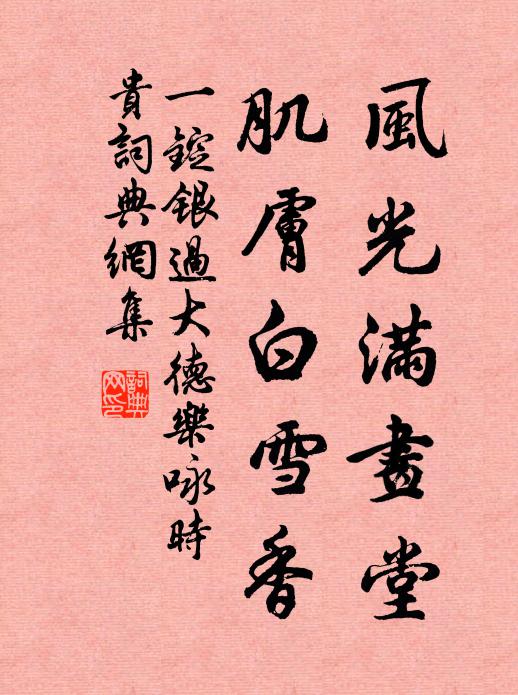 風光滿畫堂
肌膚白雪香
一錠銀過大德樂咏時
貴詞典網集
詞典網印